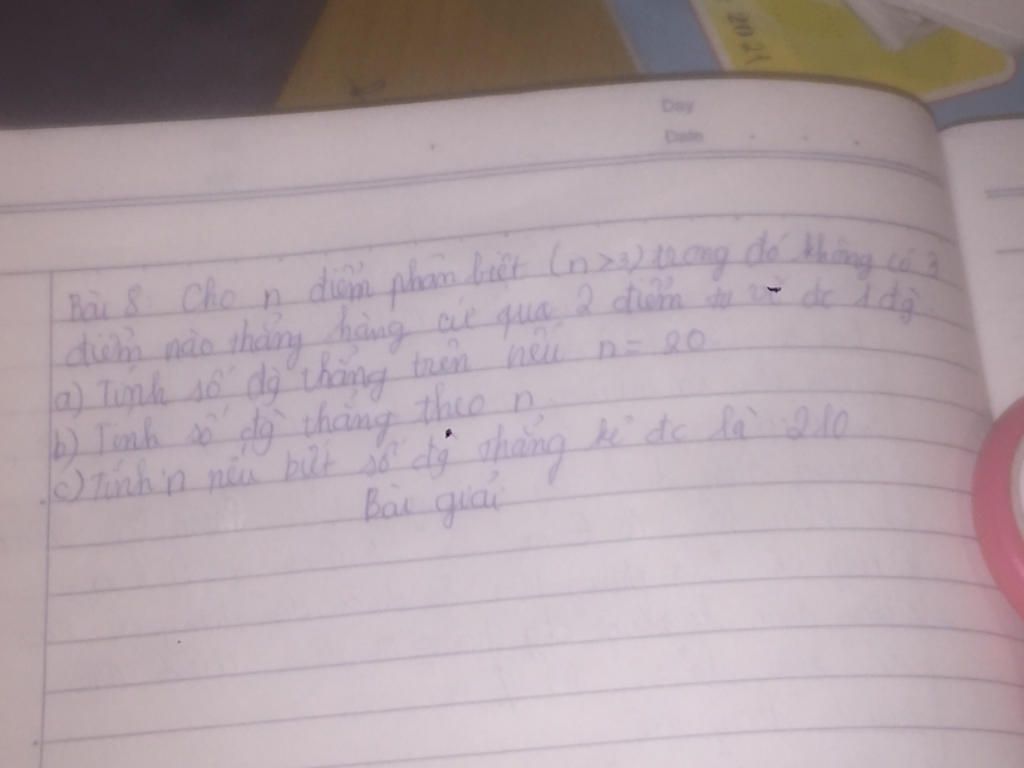 2021
Day
Date
Bài 8. Cho n điểm phân biệt (n>3) trong đó không có 3
điểm nào thẳng hàng cứ qua 2 điểm ta vẽ đc 1 đg
a) Tính số đg thẳng trên nếu n = 20
b) Tính số đg thẳng theo n
c) Tính n nếu biết số đg thẳng kẻ đc là 210
Bài giải